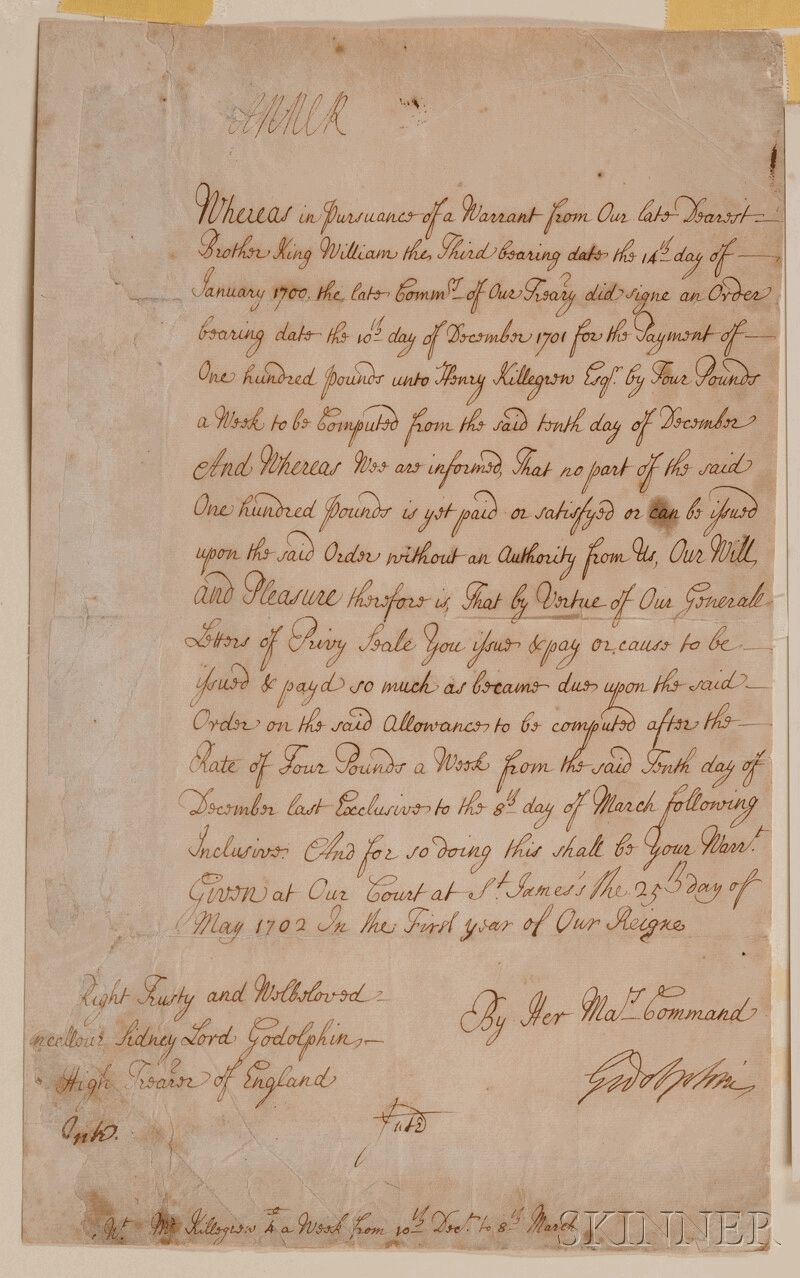 ANNE R
Whereas in Pursuance of a Warrant from Our late Dearest
Brother King William the Third bearing date the 14th day of
January 1700 the late Commrs of Our Treary did signe an Order
bearing date the 10th day of December 1701 for the Payment of
One hundred Pounds unto Henry Killegrew Esqr. by Four Pounds
a Week to be Computed from the said tenth day of December
And Whereas Wee are informed, That no part of the said
One hundred Pounds is yet paid or satisfyed or can be issued
upon the said Order without an Authority from Us, Our Will
and Pleasure therefore is, That by Vertue of Our Generall
Letters of Privy Seale You issue & pay or cause to be
issued & payd so much as became due upon the said
Order on the said Allowance to be computed after the
Rate of Four Pounds a Week from the said Tenth day of
December last Exclusive to the 8th day of March following
Inclusive And for so doing this shall be Your Warrt.
Given at Our Court at St. James's the 25th day of
May 1702 In the First year of Our Reigne
Right Trusty and Welbeloved
ncellour Sidney Lord Godolphin
High Trearer of England
By Her Mats Command
Godolphin
Wt. Mr Killegrew 4 a Week from 10th Decr. to 8th March
SKINNER